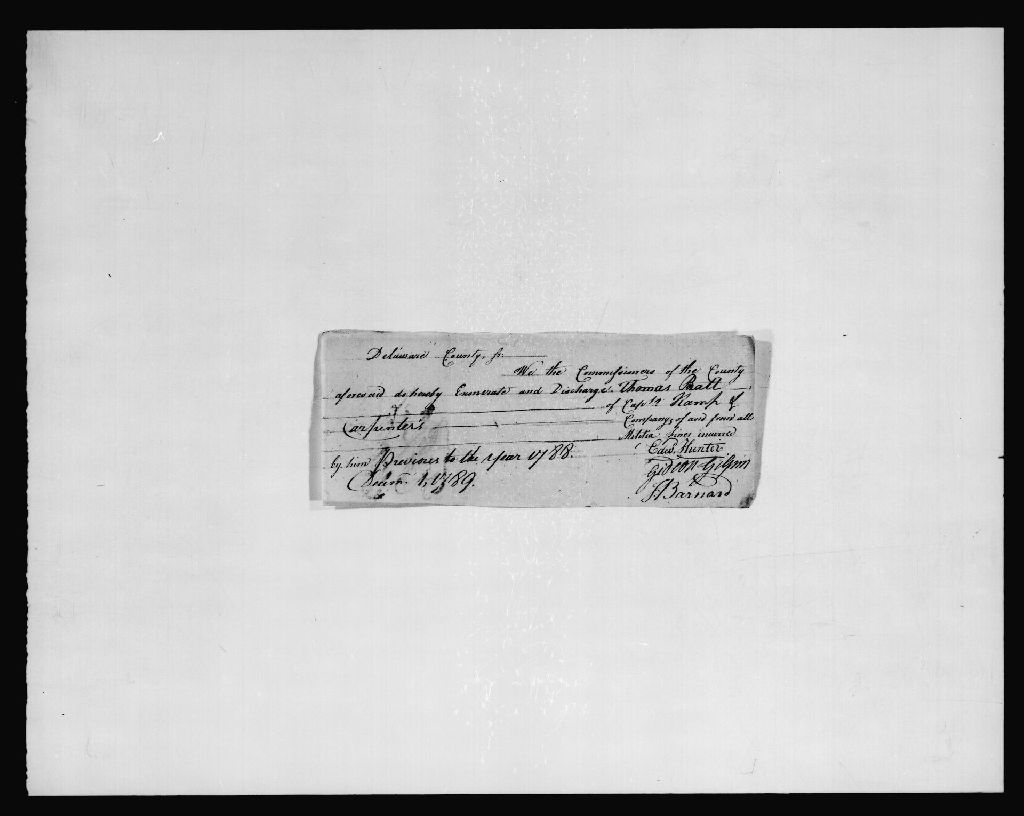 Delaware County, ss.
We the Commissioners of the County
aforesaid do hereby Exonerate and Discharge Thomas Pratt
of Capt
Carpenter's Company, of and from all
Militia fines incurred
by him Previous to the Year 1788
1, 1789.
Edw. Hunter
Gideon Gilpin
Barnard